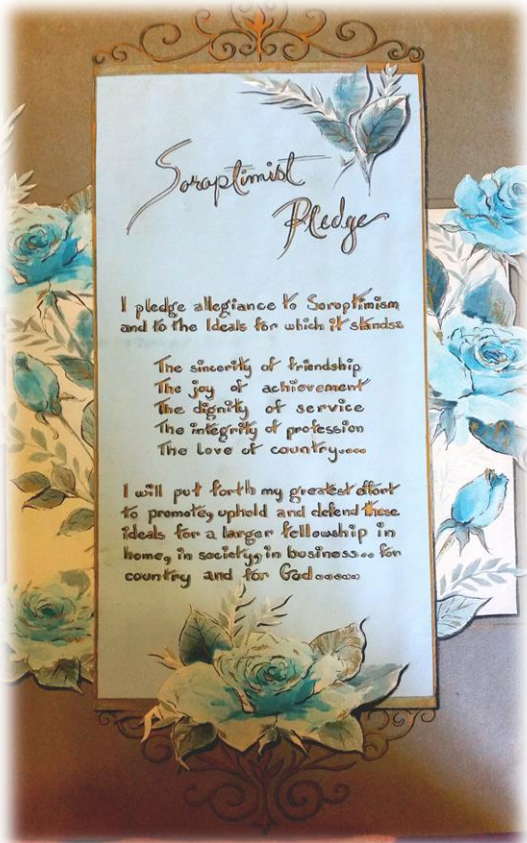 Soroptimist
Pledge
I pledge allegiance to Soroptimism
and to the Ideals for which it stands:
The sincerity of friendship
The joy of achievement
The dignity of service
The integrity of profession
The Love of country....
I will put forth my greatest effort
to promote, uphold and defend these
ideals for a larger fellowship in
home, in society, in business... for
country and for God......